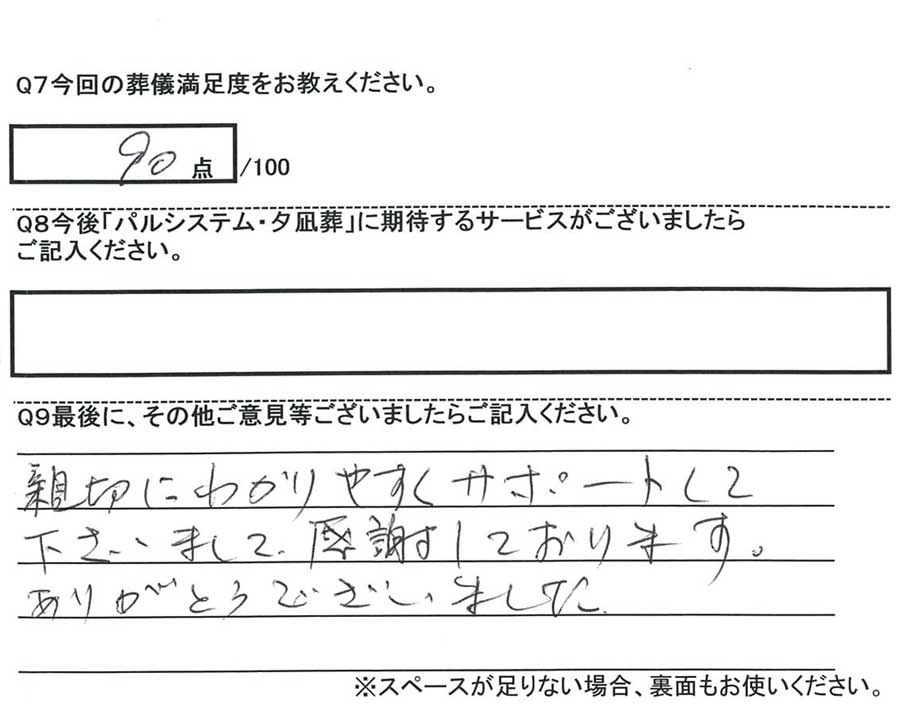 Q7今回の葬儀満足度をお教えください。
90点/100
Q8今後「パルシステム・夕凪葬」に期待するサービスがございましたら
ご記入ください。
Q9最後に、その他ご意見等ございましたらご記入ください。
親切にわかりやすくサポートして
下さいまして、感謝申しております。
ありがとうございました
※スペースが足りない場合、裏面もお使いください。